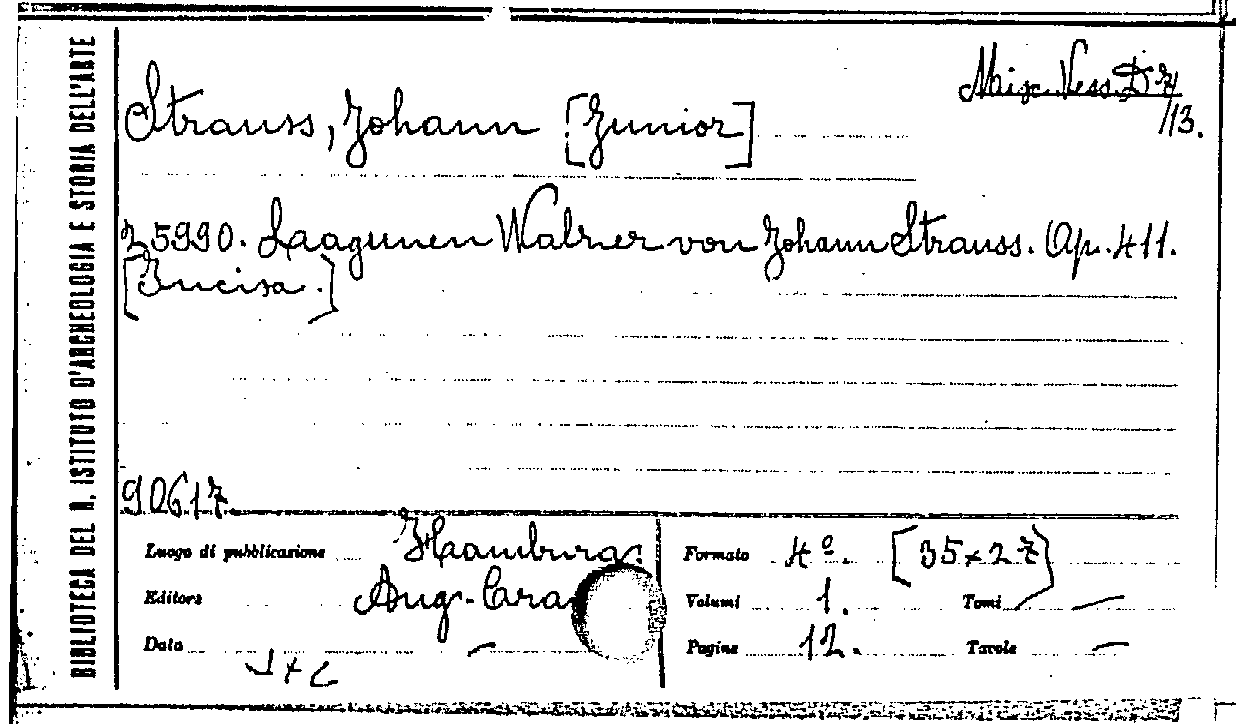 BIBLIOTECA DEL R. ISTITUTO D'ARCHEOLOGIA E STORIA DELL'ARTE
Misc. Vess. D 7
/13.
Strauss, Johann [Junior]
25990. Laagunen Walzer von Johann Strauss. Op. 411.
[Incisa.]
90617
Luogo di pubblicazione Hamburg.
Editore Aug. Cra
Data –
Formato 4º. [35×27]
Volumi 1. Tomi –
Pagine 12. Tavole –